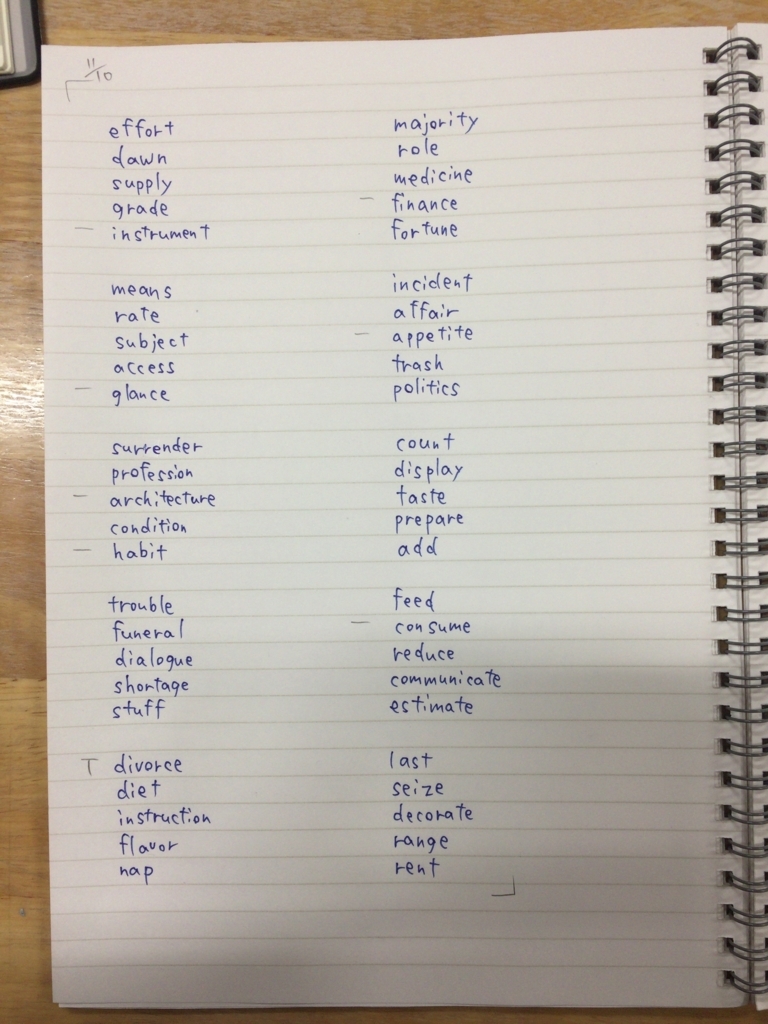 11/10
effort
dawn
supply
grade
— instrument
means
rate
subject
access
— glance
surrender
profession
— architecture
condition
— habit
trouble
funeral
dialogue
shortage
stuff
T divorce
diet
instruction
flavor
nap
majority
role
medicine
— finance
fortune
incident
affair
— appetite
trash
politics
count
display
taste
prepare
add
feed
— consume
reduce
communicate
estimate
last
seize
decorate
range
rent